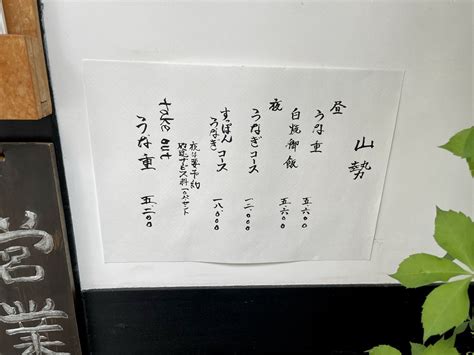 山勢
昼
うな重 五.六〇〇
白焼御飯 五.六〇〇
夜
うなぎコース 一二.〇〇〇
すっぽん
うなぎコース 一八.〇〇〇
夜は要予約
サービス料一〇パーセント
take out
うな重 五.二〇〇
営業